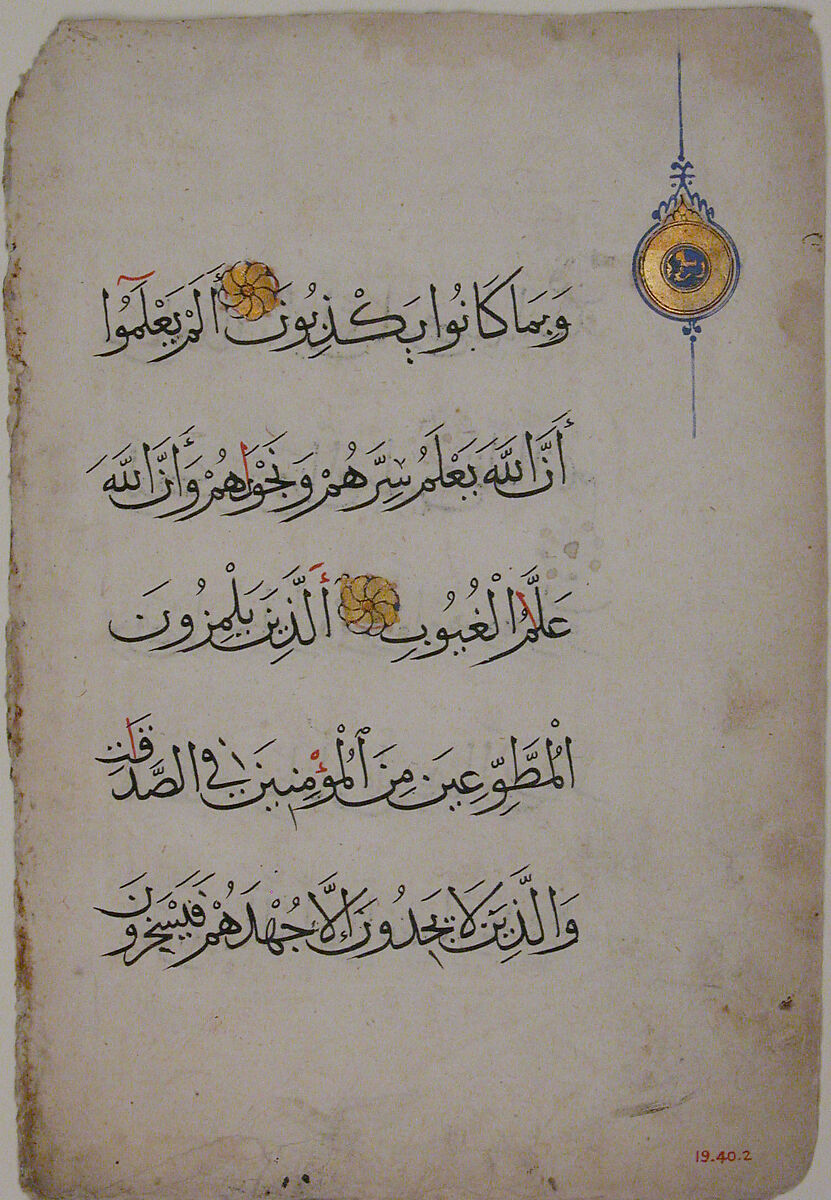 وَبِمَا كَانُوا يَكْذِبُونَ أَلَمْ يَعْلَمُوا
أَنَّ اللَّهَ يَعْلَمُ سِرَّهُمْ وَنَجْوَاهُمْ وَأَنَّ اللَّهَ
عَلَّامُ الْغُيُوبِ أَلَّذِينَ يَلْمِزُونَ
الْمُطَّوِّعِينَ مِنَ الْمُؤْمِنِينَ فِي الصَّدَقَاتِ
وَالَّذِينَ لَا يَجِدُونَ إِلَّا جُهْدَهُمْ فَيَسْخَرُونَ
19.40.2